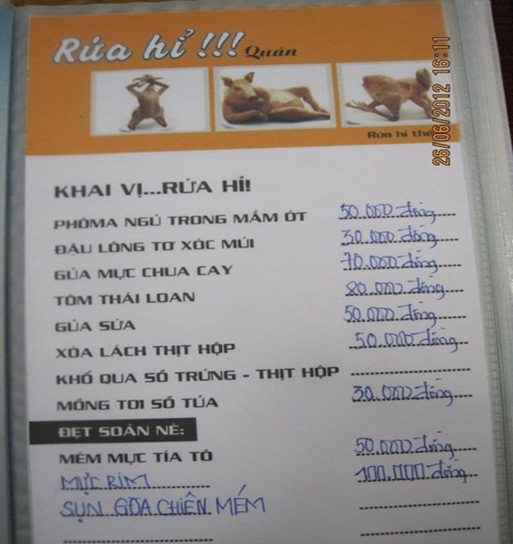 Rứa hỉ !!! Quán
26/06/2012 16:11
Rứa hỉ thế
KHAI VỊ...RỨA HỈ!
PHÔMA NGỦ TRONG MẮM ỚT 50.000 đồng
ĐẬU LÔNG TƠ XÓC MÚI 30.000 đồng
GỦA MỰC CHUA CAY 70.000 đồng
TÔM THÁI LOAN 80.000 đồng
GỦA SỨA 50.000 đồng
XÒA LÁCH THỊT HỘP 50.000 đồng
KHỔ QUA SỐ TRỨNG - THỊT HỘP
MỒNG TƠI SỐ TỦA 30.000 đồng
ĐẸT SOẢN NÈ:
MÉM MỰC TÍA TÔ 50.000 đồng
MỰC RIM 100.000 đồng
SỤN GOA CHIÊN MÉM